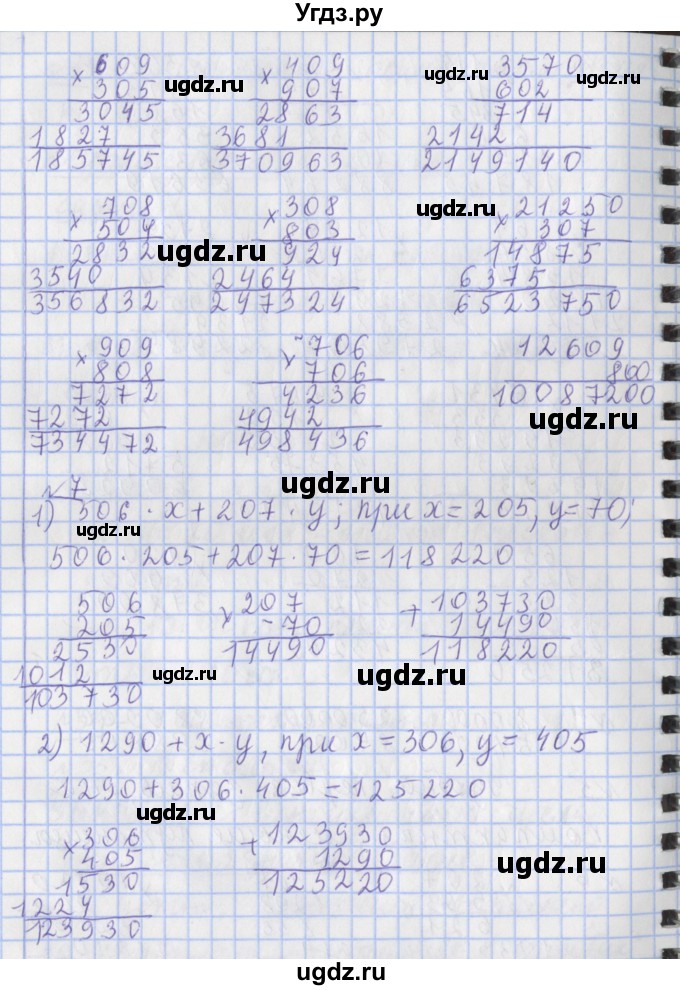 Угдз.ру
× 609 × 409 3570
305 907 602
3045 2863 714
1827 3681 2142
185745 370963 2149140
ugdz.ru ugdz.ru ugdz.ru ugdz.ru
× 708 × 308 × 21250
504 803 307
2832 924 14875
3540 2464 6375
356832 247324 6523750
ugdz.ru ugdz.ru ugdz.ru
× 909 × 706 12609
808 706 800
7272 4236 10087200
7272 4942
734472 498436
ugdz.ru ugdz.ru
№7
1) 506 · x + 207 · y; при x = 205, y = 70;
ugdz.ru
506 · 205 + 207 · 70 = 118220
506 × 207 + 103730
205 70 14490
2530 14490 118220
1012
103730
ugdz.ru ugdz.ru
2) 1290 + x · y, при x = 306, y = 405
1290 + 306 · 405 = 125220
ugdz.ru
× 306 + 123930
405 1290
1530 125220
1224
123930
ugdz.ru ugdz.ru
ugdz.ru